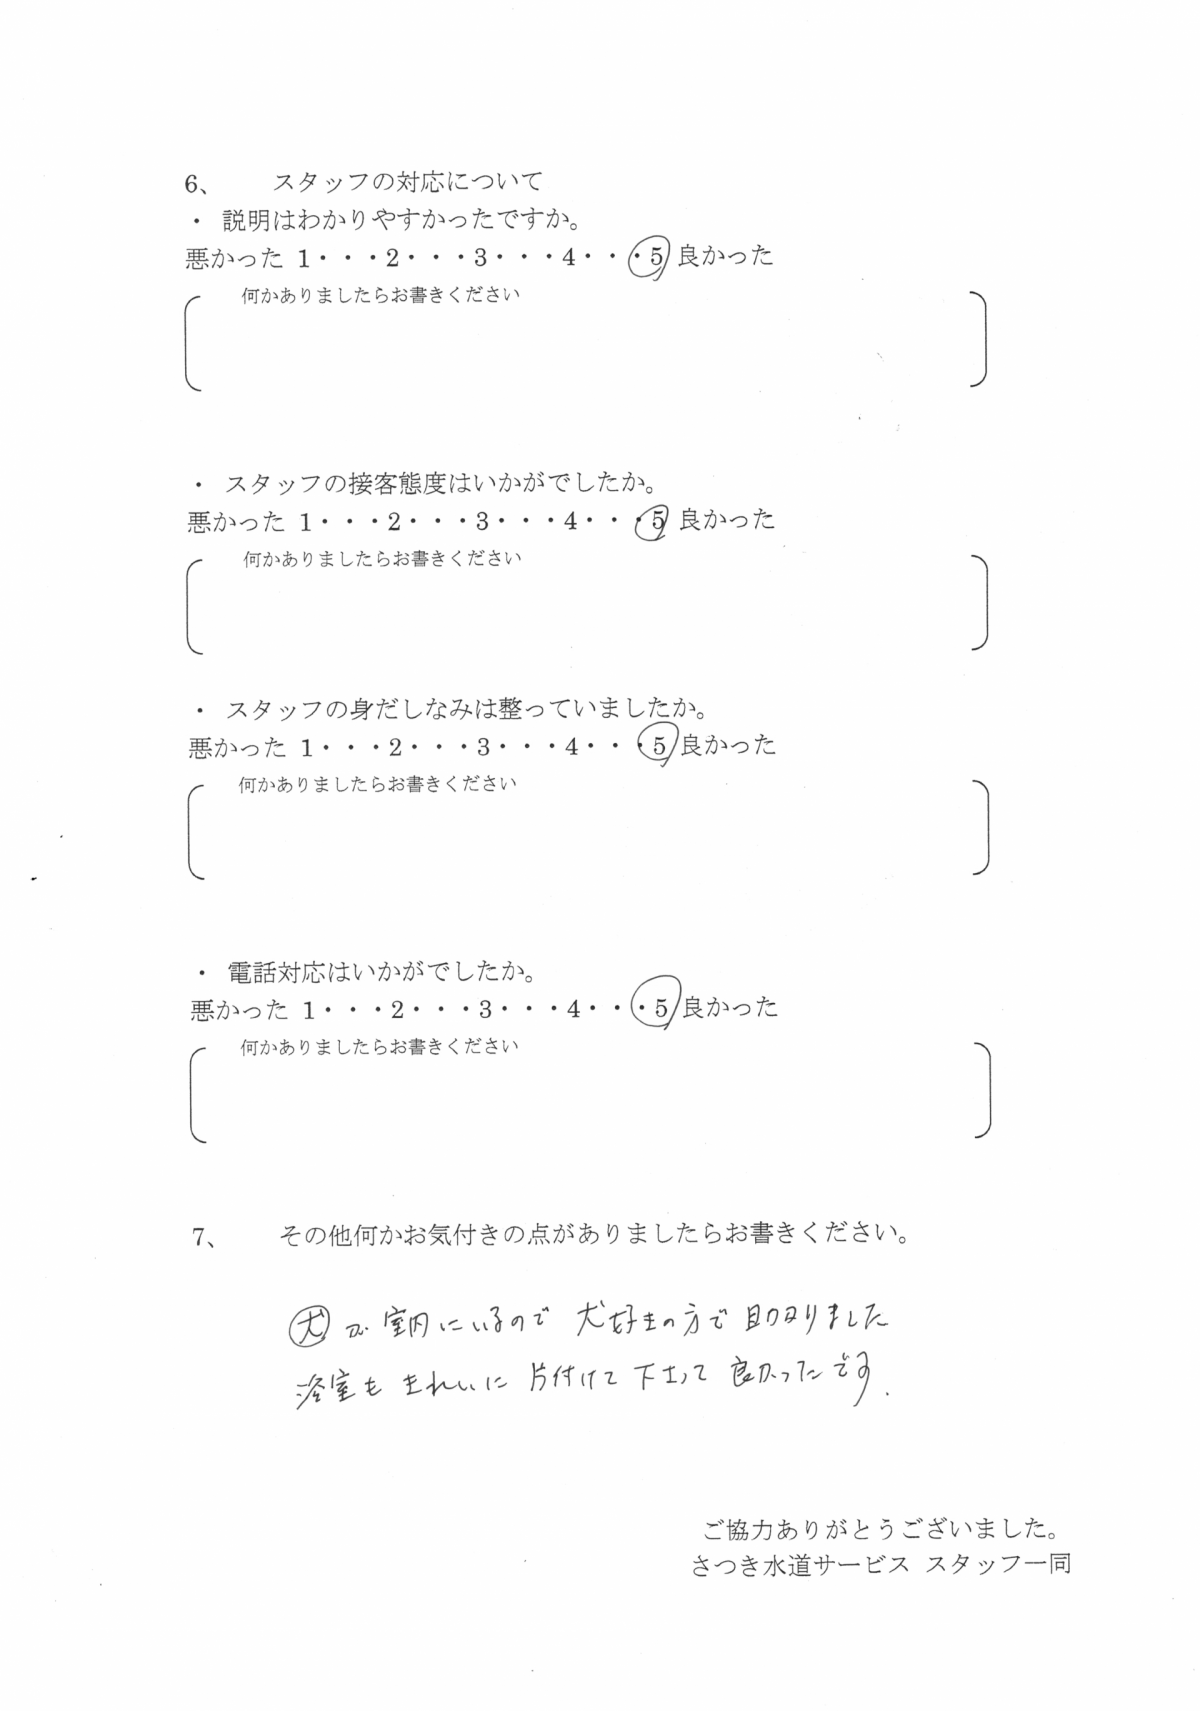 6、 スタッフの対応について
・ 説明はわかりやすかったですか。
悪かった 1・・・2・・・3・・・4・・・5 良かった
何かありましたらお書きください
・ スタッフの接客態度はいかがでしたか。
悪かった 1・・・2・・・3・・・4・・・5 良かった
何かありましたらお書きください
・ スタッフの身だしなみは整っていましたか。
悪かった 1・・・2・・・3・・・4・・・5 良かった
何かありましたらお書きください
・ 電話対応はいかがでしたか。
悪かった 1・・・2・・・3・・・4・・・5 良かった
何かありましたらお書きください
7、 その他何かお気付きの点がありましたらお書きください。
犬が室内にいるので 犬好きの方で助かりました
浴室もきれいに片付けて下さって良かったです.
ご協力ありがとうございました。
さつき水道サービス スタッフ一同